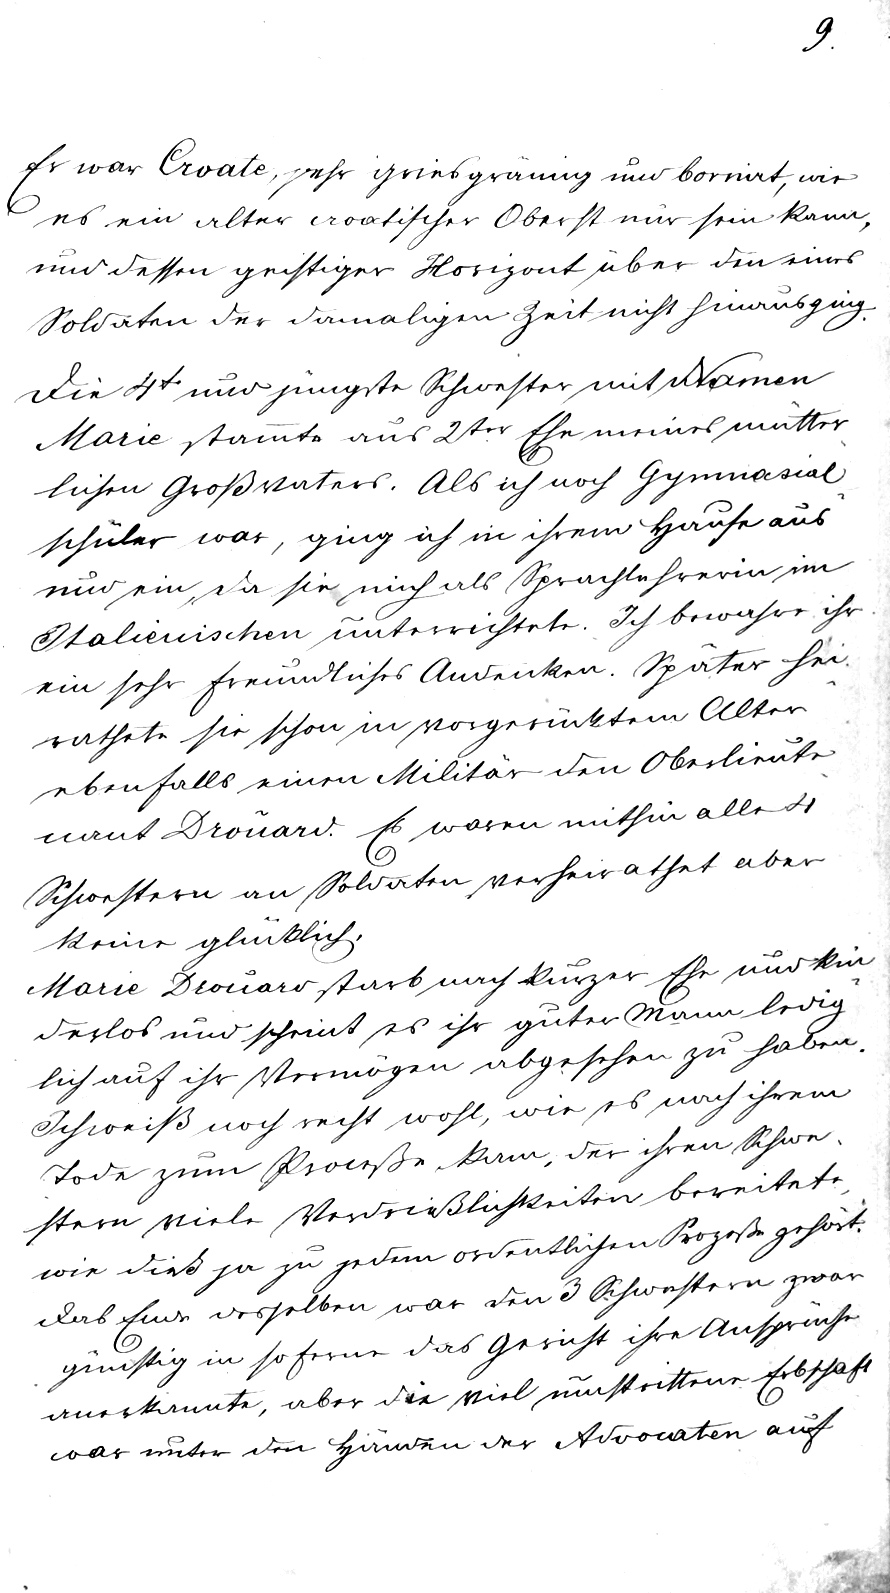 9.
Er war Croate, sehr griesgrämig und bornirt, wie
es ein alter croatischer Oberst nur sein kann,
und dessen geistiger Horizont über den eines
Soldaten der damaligen Zeit nicht hinausging.
Die 4t und jüngste Schwester mit Namen
Marie stam̅te aus 2ter Ehe meines mütter
lichen Großvaters. Als ich noch Gymnasial
schüler war, ging ich in ihrem Hause aus
und ein, da sie mich als Sprachlehrerin im
Italienischen unterrichtete. Ich bewahre ihr
ein sehr freundliches Andenken. Später hei-
rathete sie schon in vorgerücktem Alter
ebenfalls einen Militär den Oberlieute
nant Drouard. Es waren mithin alle 4
Schwestern an Soldaten verheirathet aber
keine glücklich.
Marie Drouard starb nach kurzer Ehe und kin
derlos und scheint es ihr guter Mann ledig
lich auf ihr Vermögen abgesehen zu haben.
Ich weiß noch recht wohl, wie es nach ihrem
Tode zum Proceße kam, der ihren Schwe-
stern viele Verdrießlichkeiten bereitete,
wie dieß ja zu jedem ordentlichen Prozeße gehört.
Das Ende desselben war den 3 Schwestern zwar
günstig in soferne das Gericht ihre Ansprüche
anerkannte, aber die viel umstrittene Erbschaft
war unter den Händen der Advocaten auf